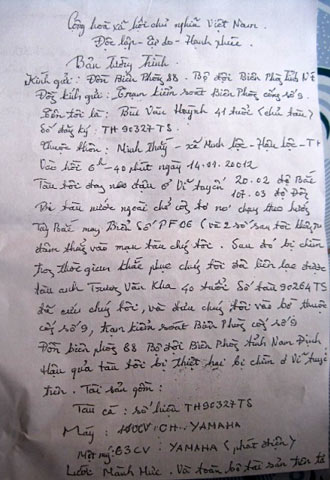 Cộng hoà xã hội chủ nghĩa Việt Nam.
Độc lập - Tự do - Hạnh phúc.
Bản Tường Trình
Kính gửi: Đồn Biên Phòng 88. Bộ đội Biên Phòng tỉnh NĐ
Đồng kính gửi: Trạm kiểm soát Biên phòng cống số 9.
Tên tôi là: Bùi Văn Huỳnh 41 tuổi (chủ tàu)
Số đăng ký: TH 90327 TS.
Thuộc thôn: Minh Thấy - xã Minh Lộc - Hậu Lộc - T H
Vào hồi 6h - 40 phút ngày 14.09.20012
Tàu tôi đang neo đậu ở Vĩ tuyến 20.02 độ Bắc
107.03 độ Đông
Bị tàu nước ngoài chở công tơ nơ chạy theo hướng
Tây Bắc mang Biển Số PF06 (và 2 số sau tôi không
đâm thẳng vào mạn tàu chúng tôi. Sau đó bị chìm
trong thời gian khắc phục chúng tôi đã liên lạc được
tàu anh Trương Văn Kha 40 tuổi Số tàu 90264 TS
đã cứu chúng tôi, và đưa chúng tôi vào bờ thuộc
cống số 9, trạm kiểm soát Biên Phòng cống số 9
Đồn biên phòng 88 Bộ đội Biên Phòng tỉnh Nam Định
Hậu quả tàu tôi bị thiệt hại bị chìm ở Vĩ tuyến
trên. Tài sản gồm:
Tàu cá: số hiệu TH90327TS
Máy: CH. YAMAHA
Một máy: 63CV: YAMAHA (phát điện)
Lưới Mành Mực. Và toàn bộ tài sản trên tà